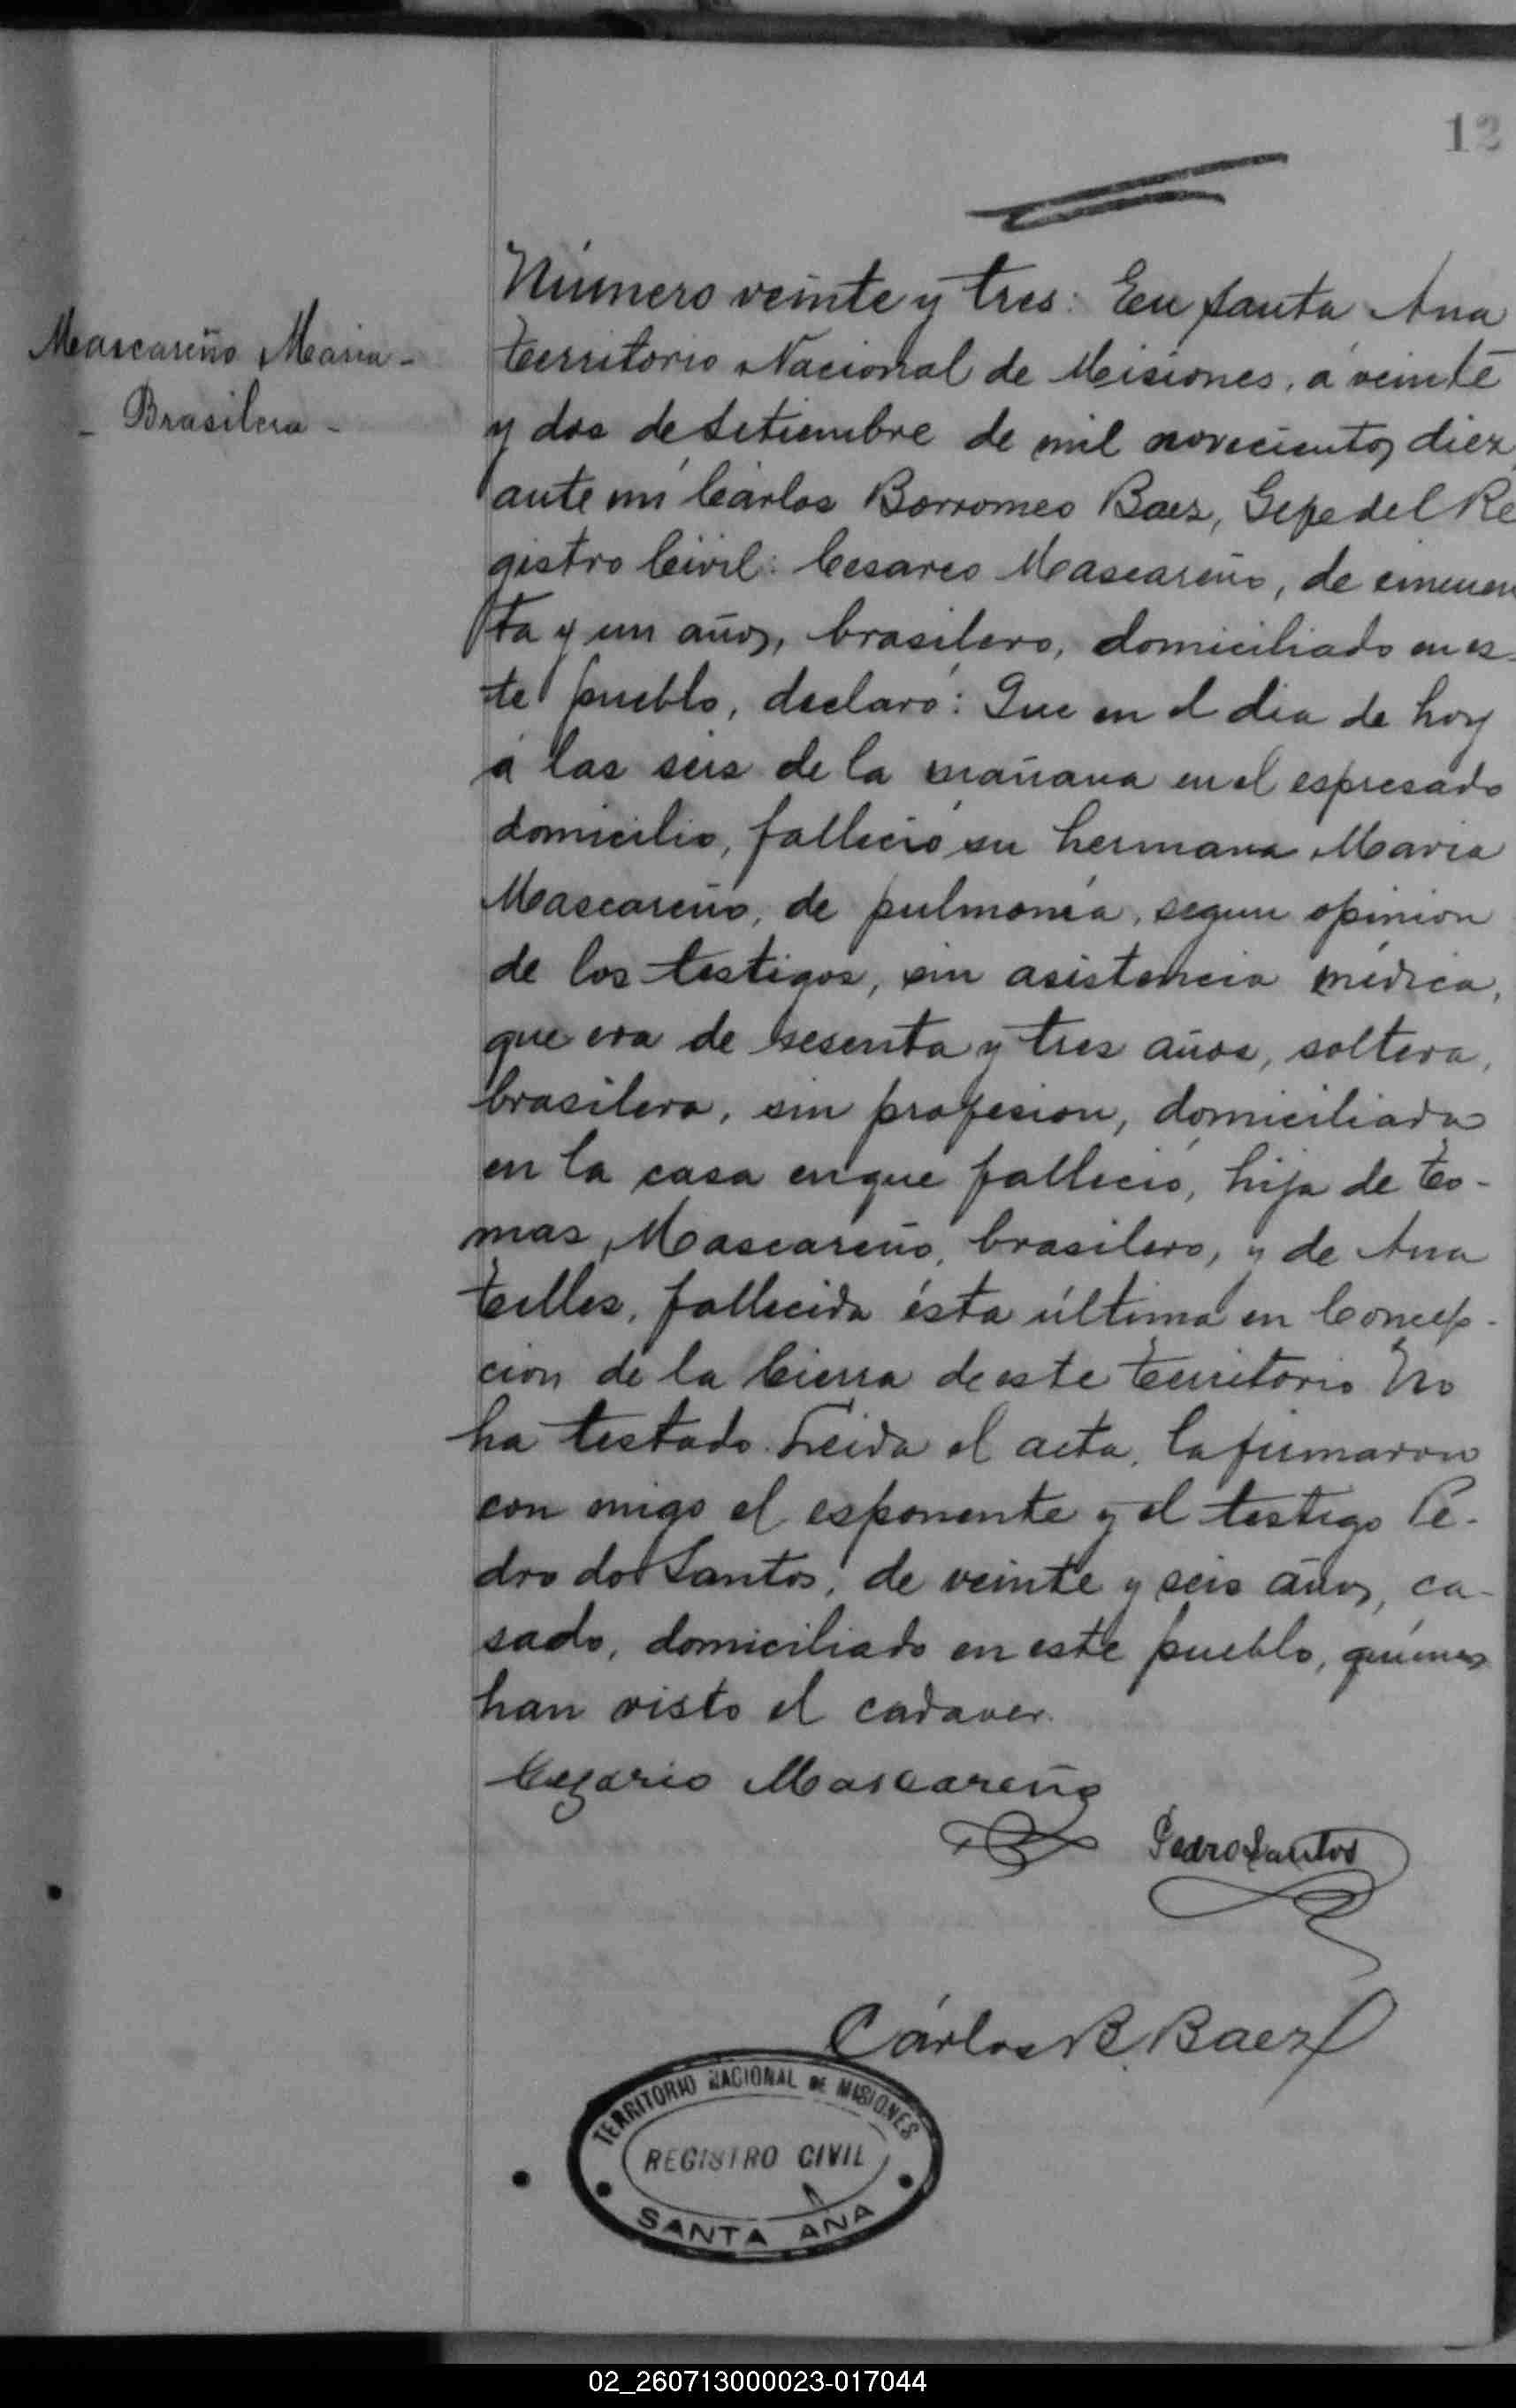 12
Número veinte y tres: En Santa Ana
Mascareño Maria -
Territorio Nacional de Misiones, á veinte
- Brasilera -
y dos de Setiembre de mil novecientos diez,
ante mi Cárlos Borromeo Baez, Gefe del Re
gistro Civil: Cesareo Mascareño, de cincuen
ta y un años, brasilero, domiciliado en es-
te pueblo, declaró: Que en el dia de hoy
á las seis de la mañana en el espresado
domicilio, falleció su hermana Maria
Mascareño, de pulmonía, segun opinion
de los testigos, sin asistencia médica,
que era de sesenta y tres años, soltera,
brasilera, sin profesion, domiciliada
en la casa en que falleció, hija de To-
mas Mascareño, brasilero, y de Ana
Telles, fallecida ésta última en Concep-
cion de la Cierra de este Territorio No
ha testado. Leida el acta, la firmaron
con migo el esponente y el testigo Pe-
dro dos Santos, de veinte y seis años, ca-
sado, domiciliado en este pueblo, quienes
han visto el cadaver.
Cezario Mascareño
Pedro Santos
Cárlos B. Baez
TERRITORIO NACIONAL DE MISIONES
REGISTRO CIVIL
SANTA ANA
02_260713000023-017044